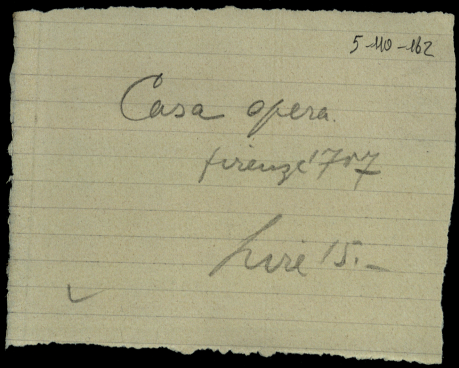 5-110-162
Casa opera.
firenze 1707
Lire 15.-